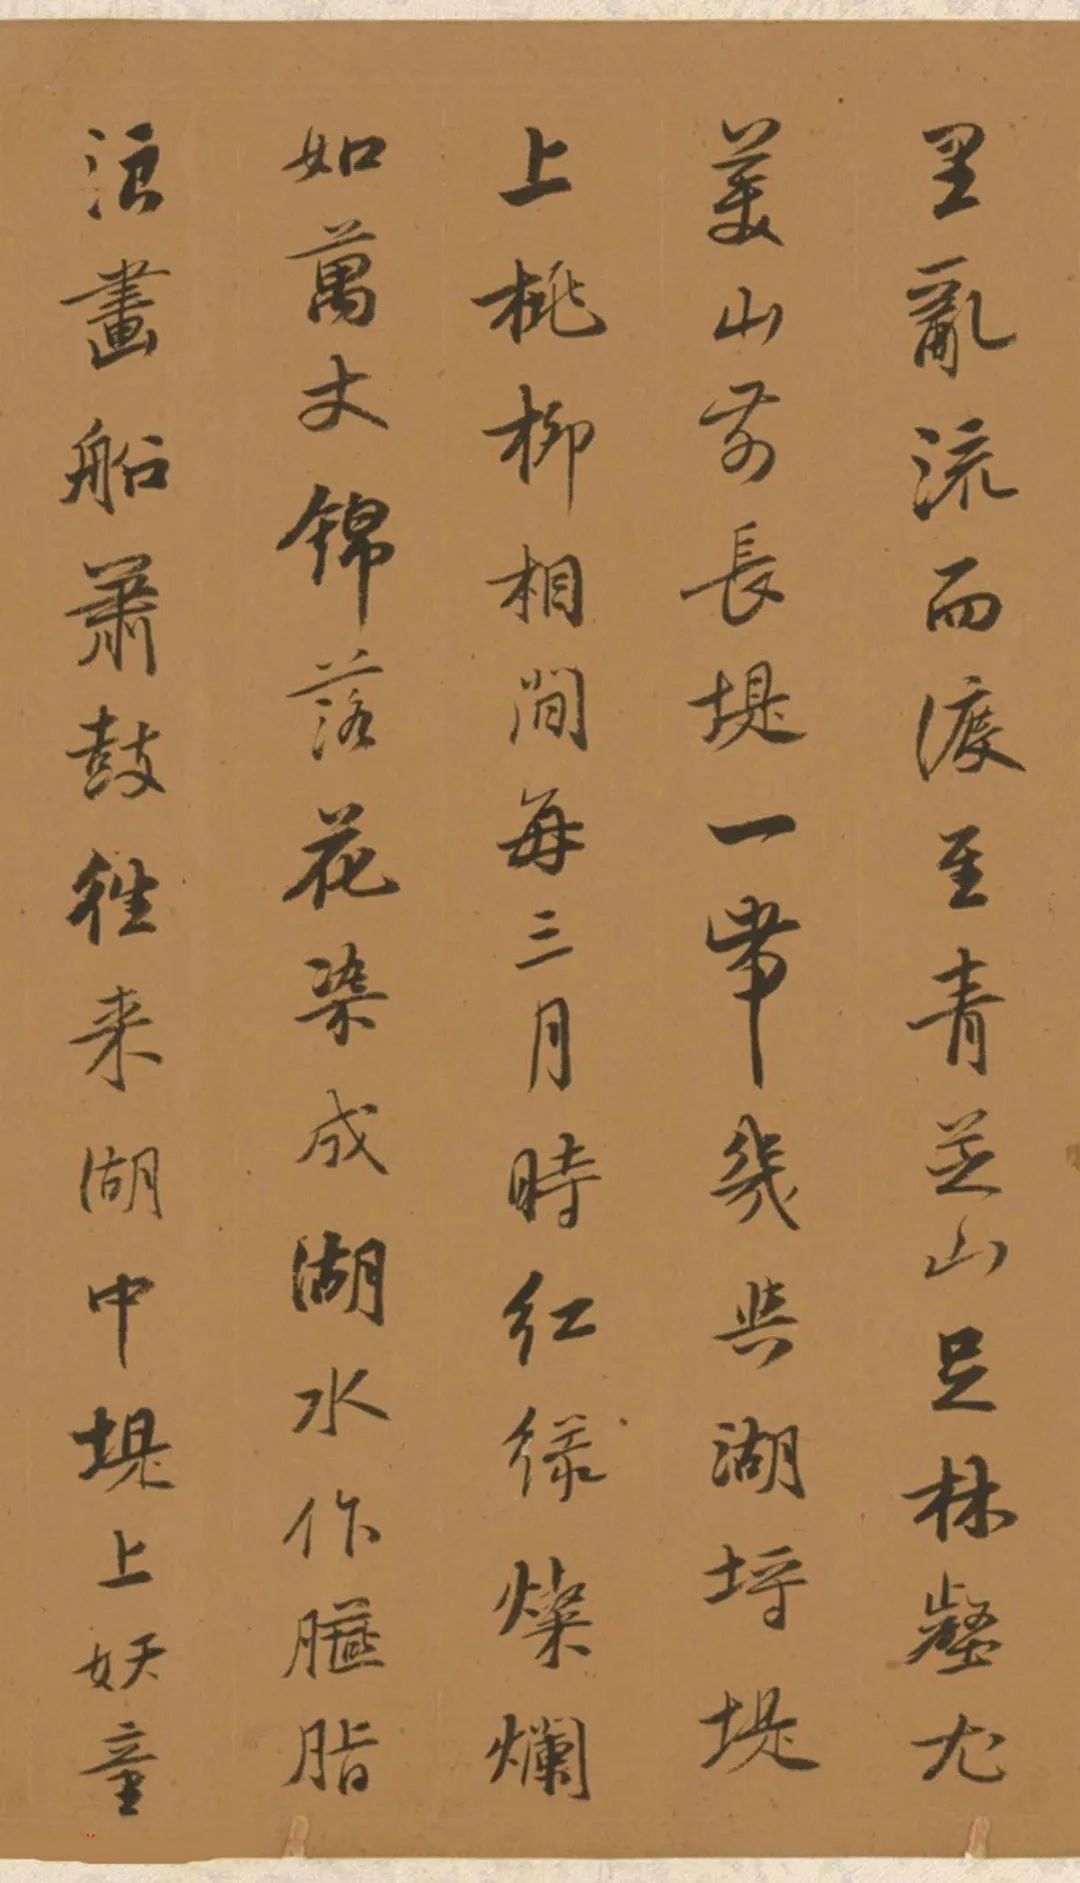 里亂流而渡至青芝山足林壑尤
美山前長堤一帶幾與湖埒堤
上桃柳相間每三月時紅綠燦爛
如萬丈錦落花染成湖水作臙脂
浪畫船蕭鼓往来湖中堤上妖童